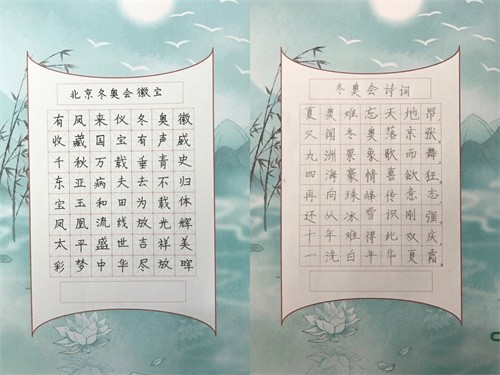 北京冬奥会徽宝
有凤来仪冬奥徽
收藏国宝有声威
千秋万载垂青史
东亚病夫去不归
宝玉和田为载体
凤凰流线放光辉
太平盛世吉祥美
彩梦中华尽放晖
冬奥会诗词
夏奥难忘天地昂
又闻冬奥落京张
九洲景象歌而舞
四海豪情喜欲狂
再向珠峰传意志
还从冰雪识刚强
十年难得此双庆
一洗白年华夏霜